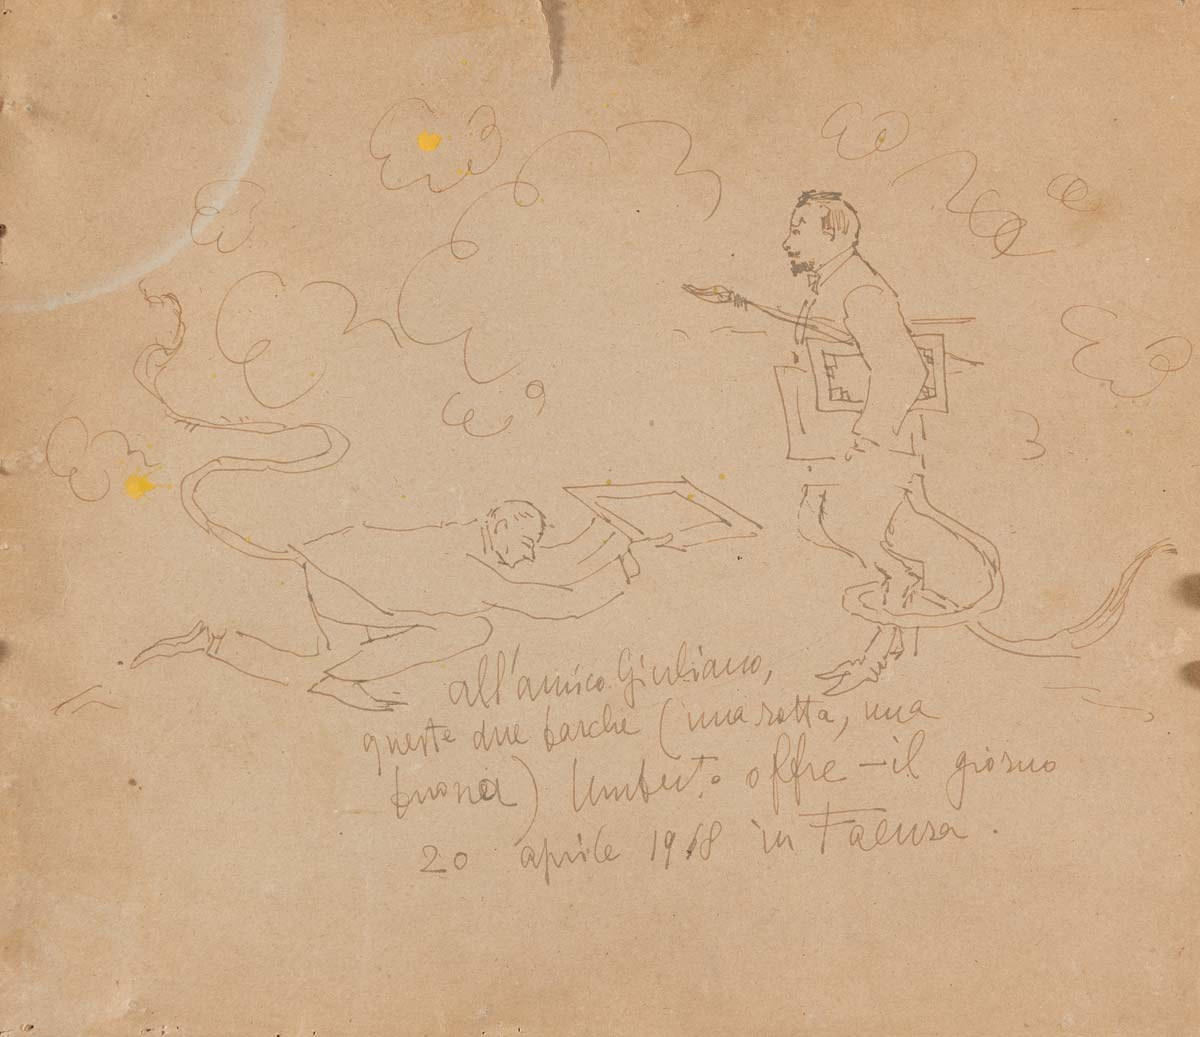 all'amico Giuliano,
queste due barche (una rotta, una
buona) Umberto offre - il giorno
20 aprile 1968 in Faenza.